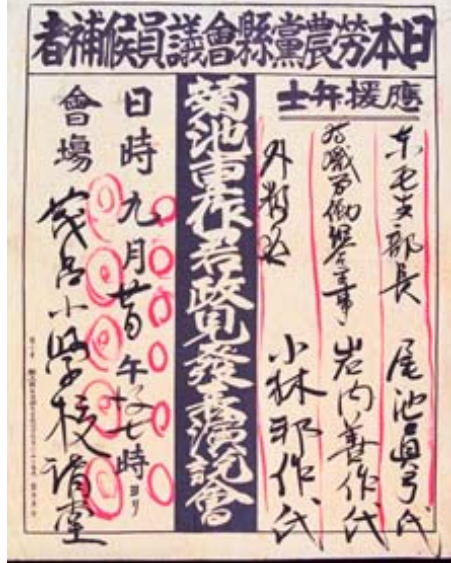 日本労農黨縣會議員候補者
應援弁士
東毛支部長 尾池眞弓氏
労働組合主事 岩内善作氏
外数名 小林邦作氏
菊池重作君政見發表演説會
日時 九月廿日 午後七時ヨリ
會塲 茂呂小學校講堂